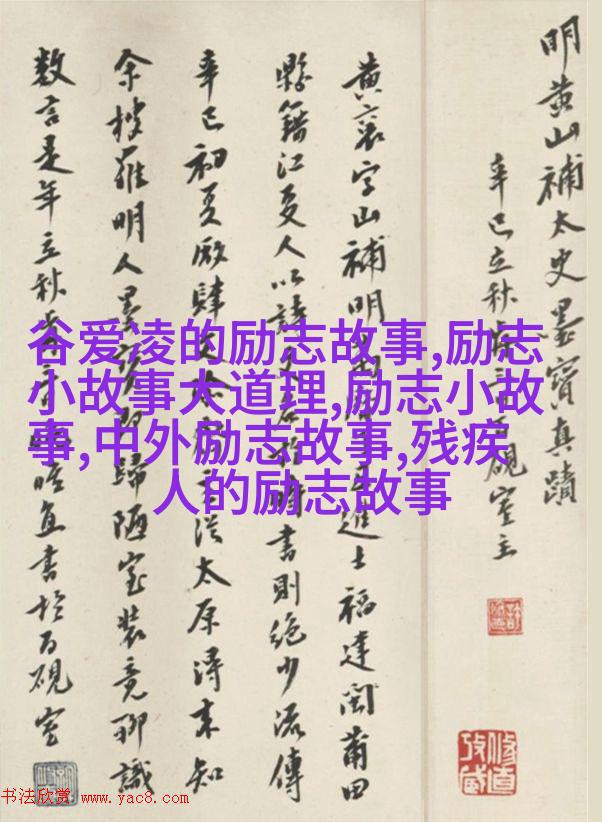 明黄山補太史墨寶真蹟
辛巳立秋 硯室主
黄襄字山補明 進士福建閩莆田
縣籍江夏人以詩 時書則絶少流傳
辛巳初夏廠肆 太原潯未知
余 羅明人墨寶 歸陋室装竟聊識
數言是年立秋 書於百硯室
谷爱凌的励志故事,励志
小故事大道理,励志小故
事,中外励志故事,残疾
人的励志故事
书法欣赏 www.yac8.com